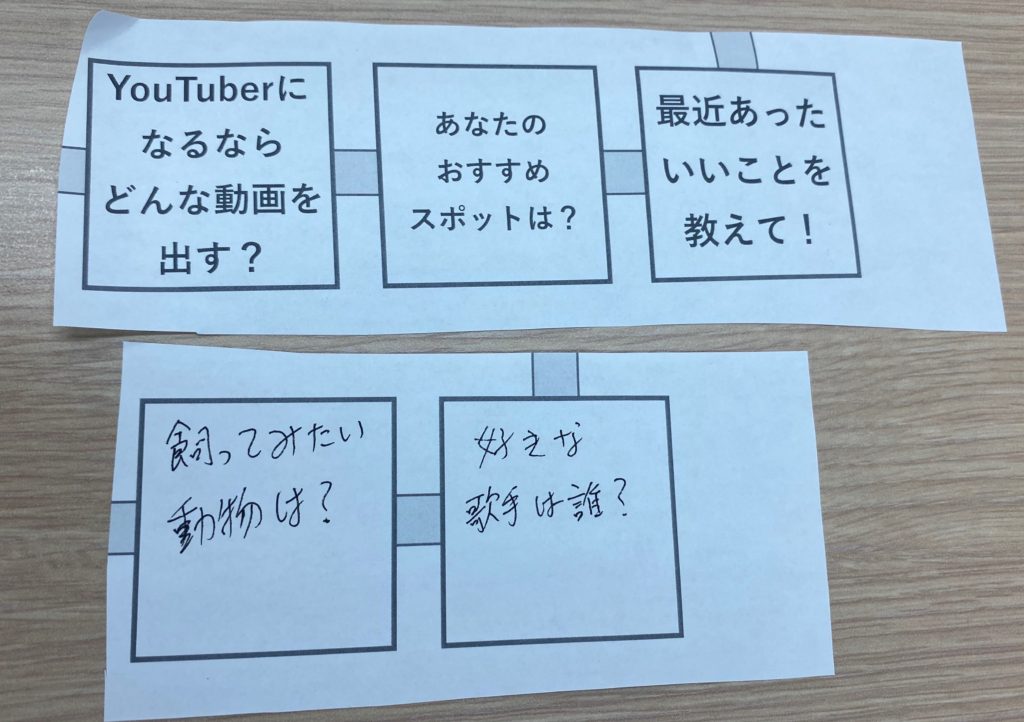 YouTuberに
なるなら
どんな動画を
出す？
あなたの
おすすめ
スポットは？
最近あった
いいことを
教えて！
飼ってみたい
動物は？
好きな
歌手は誰？